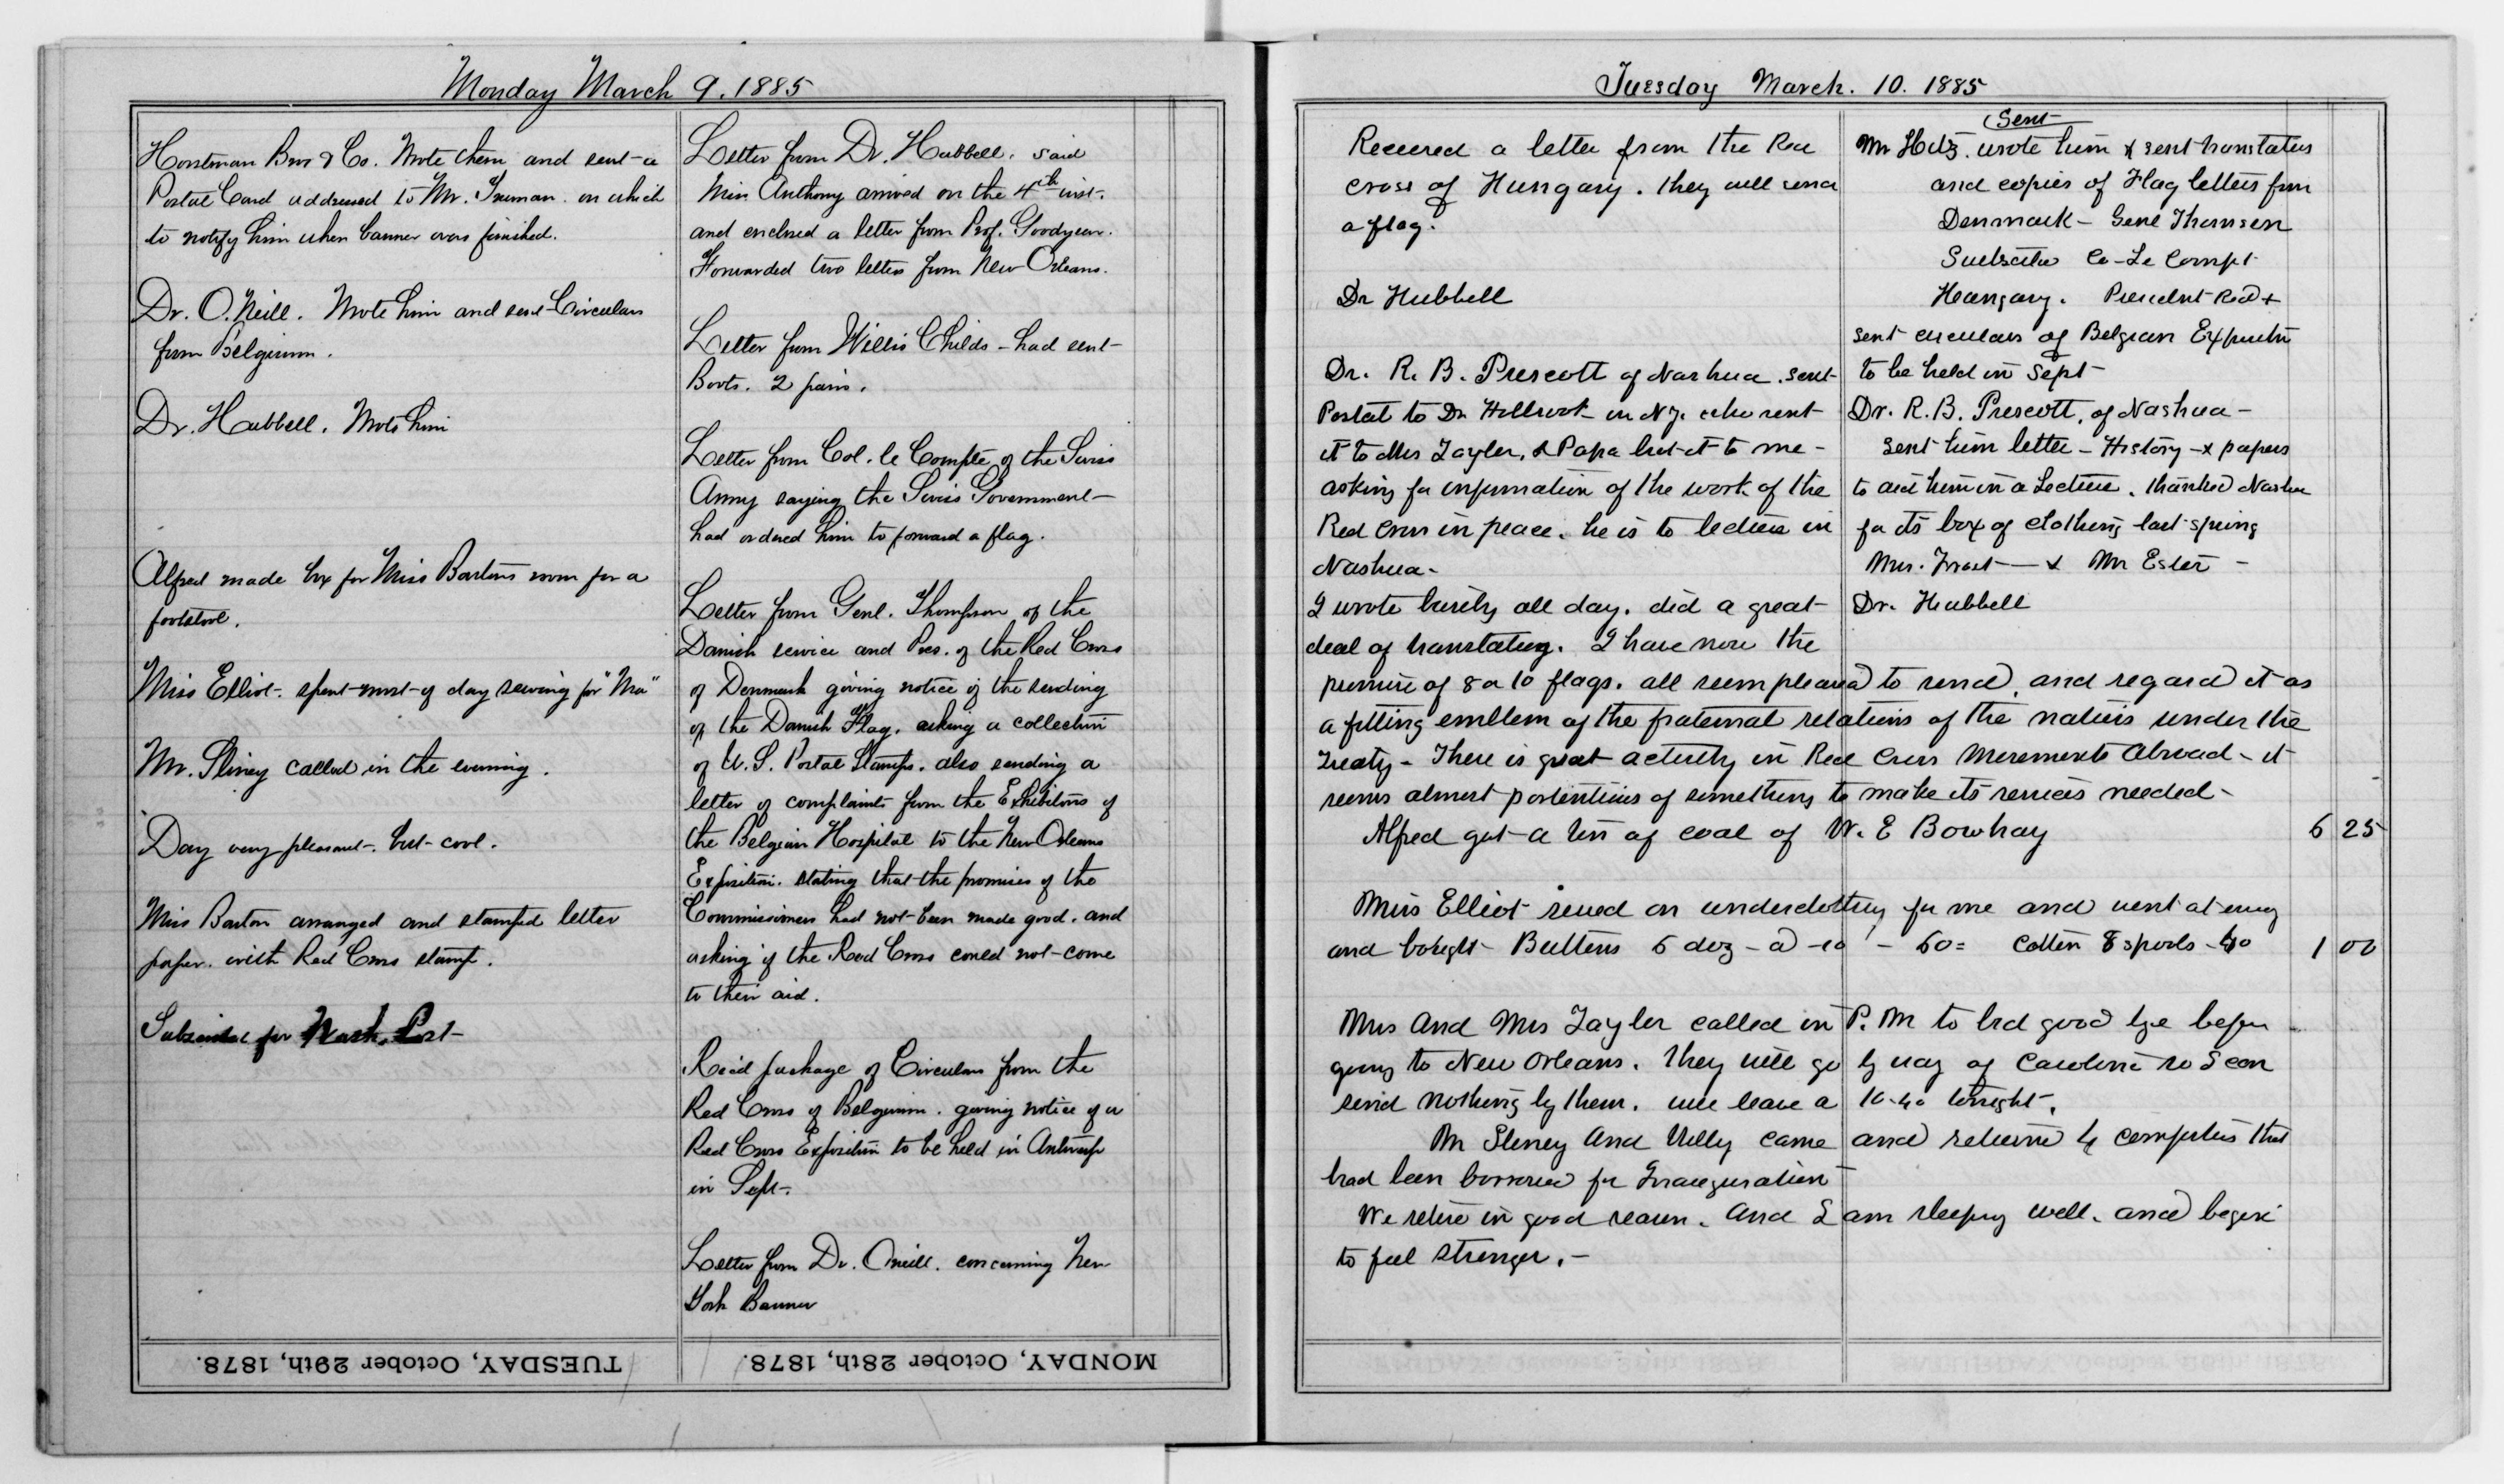 Monday March 9. 1885
Horstman Bros & Co. Wrote them and sent a
Postal Card addressed to Mr. Truman on which
to notify him when banner was finished.
Dr. O.Neill. Wrote him and sent Circulars
from Belgium.
Dr. Hubbell. Wrote him
Alfred made box for Miss Bartons room for a
footstool.
Miss Elliot. spent most of day sewing for "Ma"
Mr. Sliney called in the evening.
Day very pleasant. but cool.
Miss Barton arranged and stamped letter
paper. with Red Cross stamp.
Subscribed for Wash. Post
Letter from Dr. Hubbell. said
Miss Anthony arrived on the 4th inst.
and enclosed a letter from Prof. Goodyear.
Forwarded two letters from New Orleans.
Letter from Willis Childs - had sent
Boots. 2 pairs.
Letter from Col. le Compte of the Swiss
Army saying the Swiss Government
had ordered him to forward a flag.
Letter from Genl. Thompson of the
Danish service and Pres. of the Red Cross
of Denmark giving notice of the sending
of the Danish Flag. asking a collection
of U.S. Postal Stamps. also sending a
letter of complaints from the Exhibitors of
the Belgian Hospital to the New Orleans
Exposition. stating that the promises of the
Commissioners had not been made good. and
asking if the Red Cross could not come
to their aid.
Rec'd package of Circulars from the
Red Cross of Belgium. giving notice of a
Red Cross Exposition to be held in Antwerp
in Sept.
Letter from Dr. Oneill. concerning New
York Banner
TUESDAY, October 29th, 1878.
MONDAY, October 28th, 1878.
Tuesday March. 10. 1885
Received a letter from the Red
Cross of Hungary. they will send
a flag.
Dr Hubbell
Dr. R. B. Prescott of Nashua. sent
Postal to Dr in NY. who sent
it to Mrs Tayler, & Papa let it to me -
asking for information of the work of the
Red Cross in peace. he is to lecture in
Nashua -
I wrote busily all day. did a great
deal of translating. I have now the
Sent
Mr Hitz. wrote him & sent translations
and copies of Flag letters from
Denmark - Genl Thomsen
Co - Le Compt
Hungary. President Red +
sent circulars of Belgian Exposition
to be held in Sept
Dr. R. B. Prescott, of Nashua -
sent him letter - History - & papers
to aid him in a Lecture. thanked Nashua
for its box of clothing last spring
Mrs. - & Mr Ester -
Dr. Hubbell
promise of 8 or 10 flags. all seem pleased to send, and regard it as
a fitting emblem of the fraternal relations of the nations under the
Treaty - There is great activity in Red Cross Movements Abroad - it
seems almost portentious of something to make its services needed -
Alfred got a ton of coal of W. E Bowhay 6 25
Miss Elliot sewed on underclothing for me and went at
and bought Buttons 5 doz - a 10 - 50 = Cotton 8 spools - 1 00
Mrs And Mrs Tayler called in P. M to bid good bye before
going to New Orleans. They will go by way of Carolina so I can
send nothing by them. will leave a 10.40 tonight.
Mr Sliney And Willy came and returned that
had been borrowed for Inauguration
We retire in good season. And I am sleeping well. and begin
to feel stronger. -